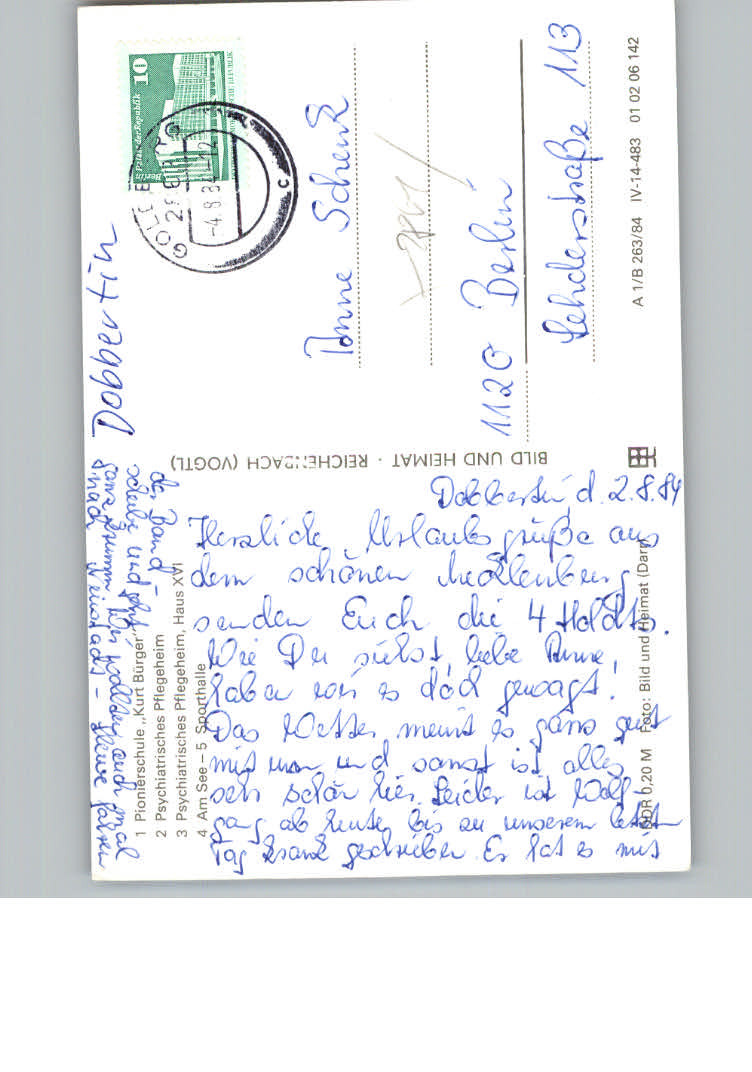 Dobbertin
Dobbertin d. 2.8.84
Herzliche Urlaubsgrüße aus
dem schönen Mecklenburg
senden Euch die 4 Holdts.
Wie Du siehst, liebe Anne,
haben wir es doch gewagt!
Das Wetter meint es ganz gut
mit uns und sonst ist alles
sehr schön hier. Leider ist Wolf-
gang ab heute bis zu unserem letzten
Tag krank geschrieben. Er hat es mit
der Band-
scheibe und geht
ganz krumm. Wir wollten auch mal
nach Neustadt - fahren
1 Pionierschule „Kurt Bürger"
2 Psychiatrisches Pflegeheim
3 Psychiatrisches Pflegeheim, Haus XVI
4 Am See – 5 Sporthalle
BILD UND HEIMAT · REICHENBACH (VOGTL)
DDR 0,20 M Foto: Bild und Heimat (Darr)
10
Palast der Republik
Berlin
GOLDBE
286
-4.8.84-12
c
Anne Schenk
1120 Berlin
Lehderstraße 113
A 1/B 263/84 IV-14-483 01 02 06 142